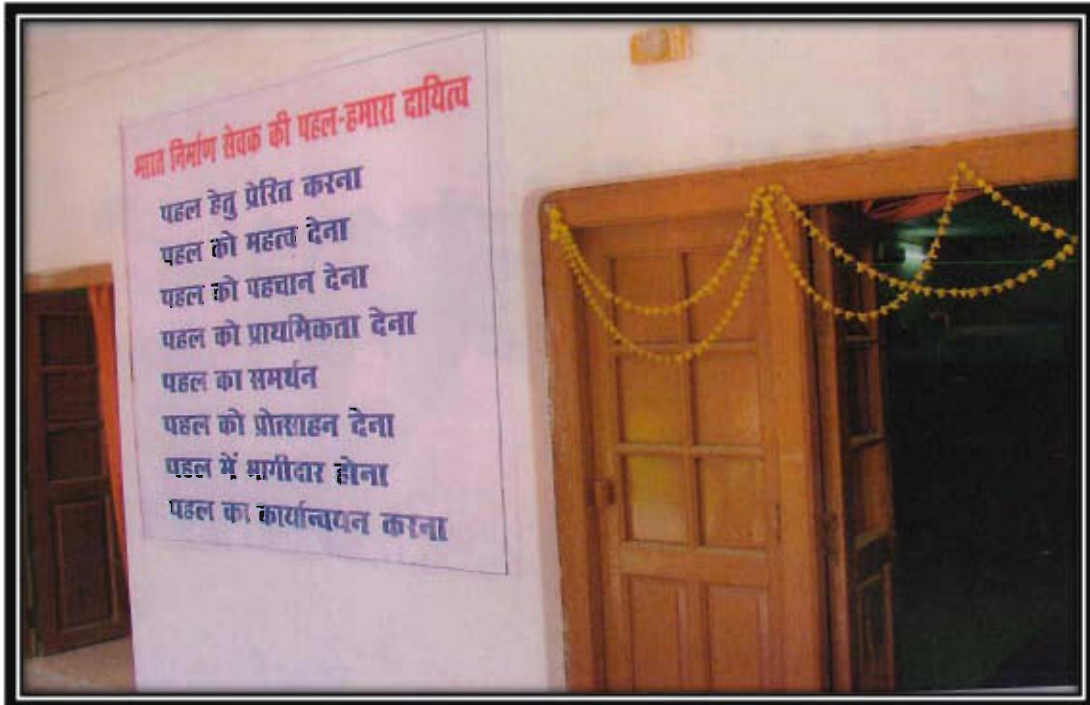 भारत निर्माण सेवक की पहल-हमारा दायित्व
पहल हेतु प्रेरित करना
पहल को महत्व देना
पहल को पहचान देना
पहल को प्राथमिकता देना
पहल का समर्थन
पहल को प्रोत्साहन देना
पहल में भागीदार होना
पहल का कार्यान्वयन करना